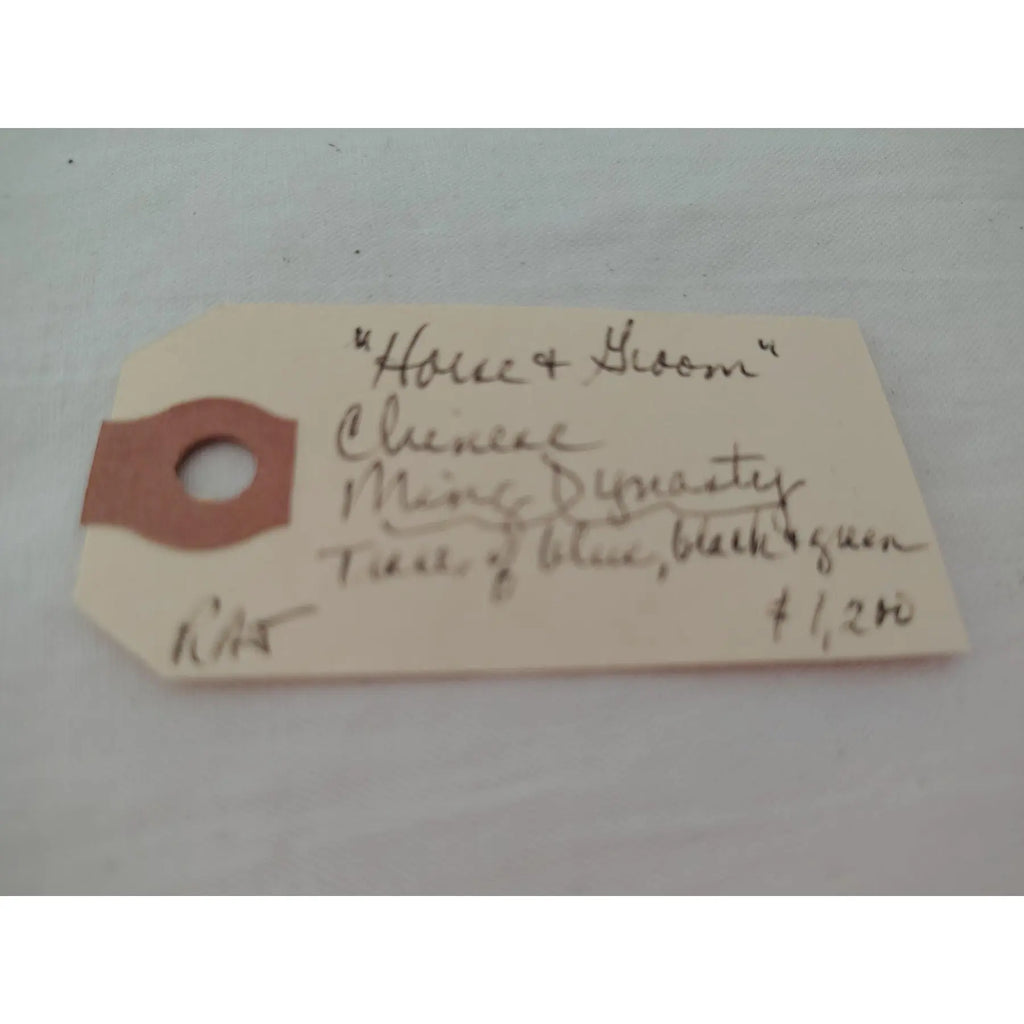 "Horse & Groom"
Chinese
Ming Dynasty
of blue, black & green
$1,200